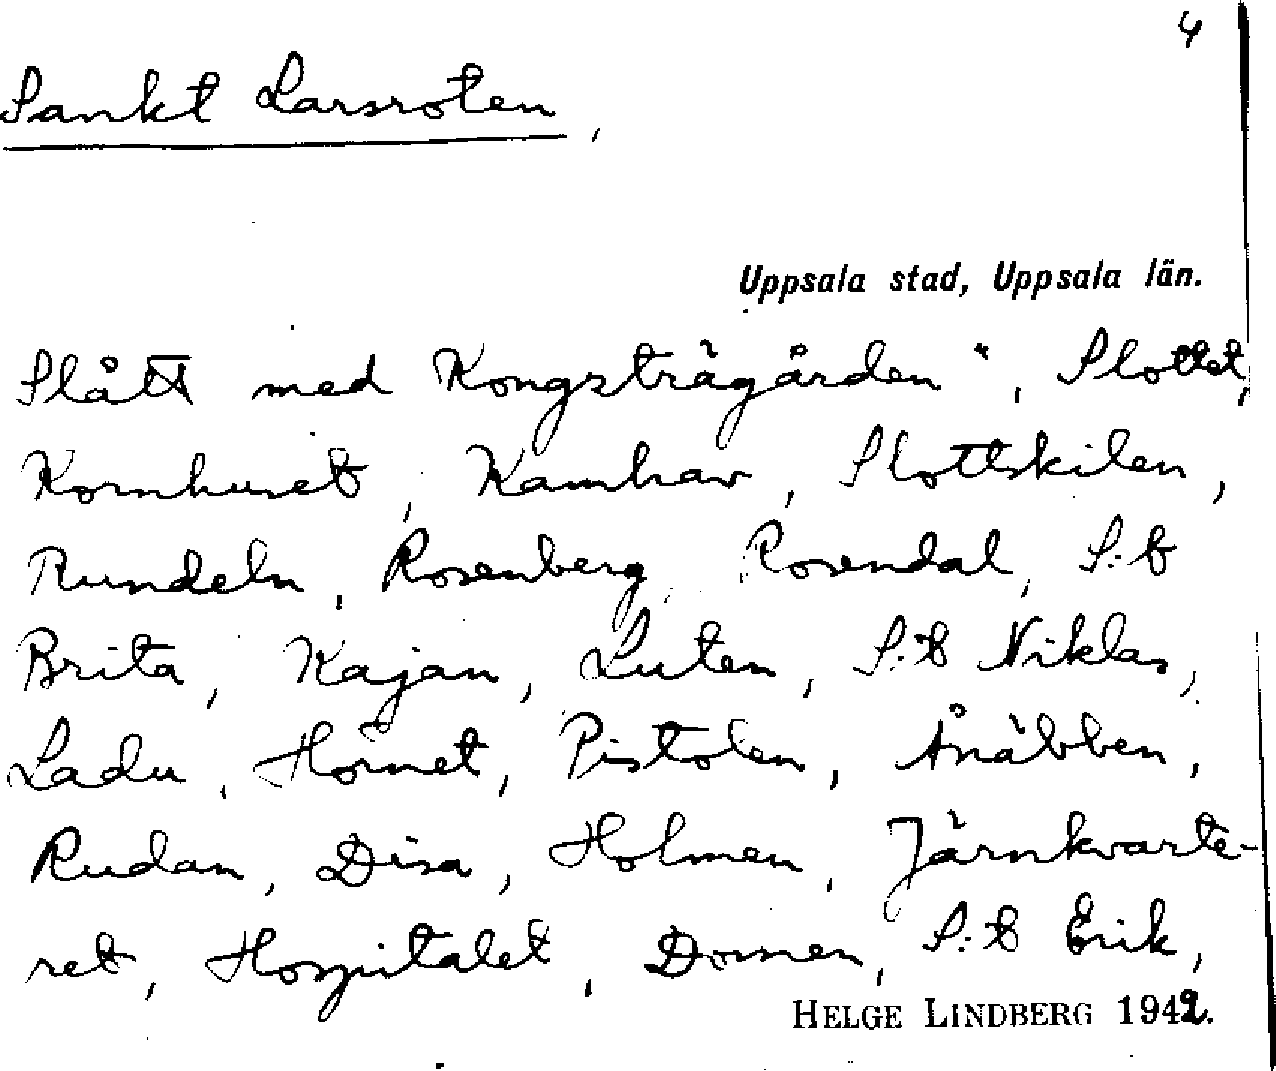 4
Sankt Larsroten,
Uppsala stad, Uppsala län.
Slått med Kongsträgården", Slottet,
Kornhuset, Kamhav, Slottskilen,
Rundeln, Rosenberg, Rosendal, S:t
Brita, Kajan, Luten, S:t Niklas,
Ladu, Hörnet, Pistolen, Ånäbben,
Rudan, Disa, Holmen, Järnkvarte-
ret, Hospitalet, Domen, S:t Erik,
HELGE LINDBERG 1942.